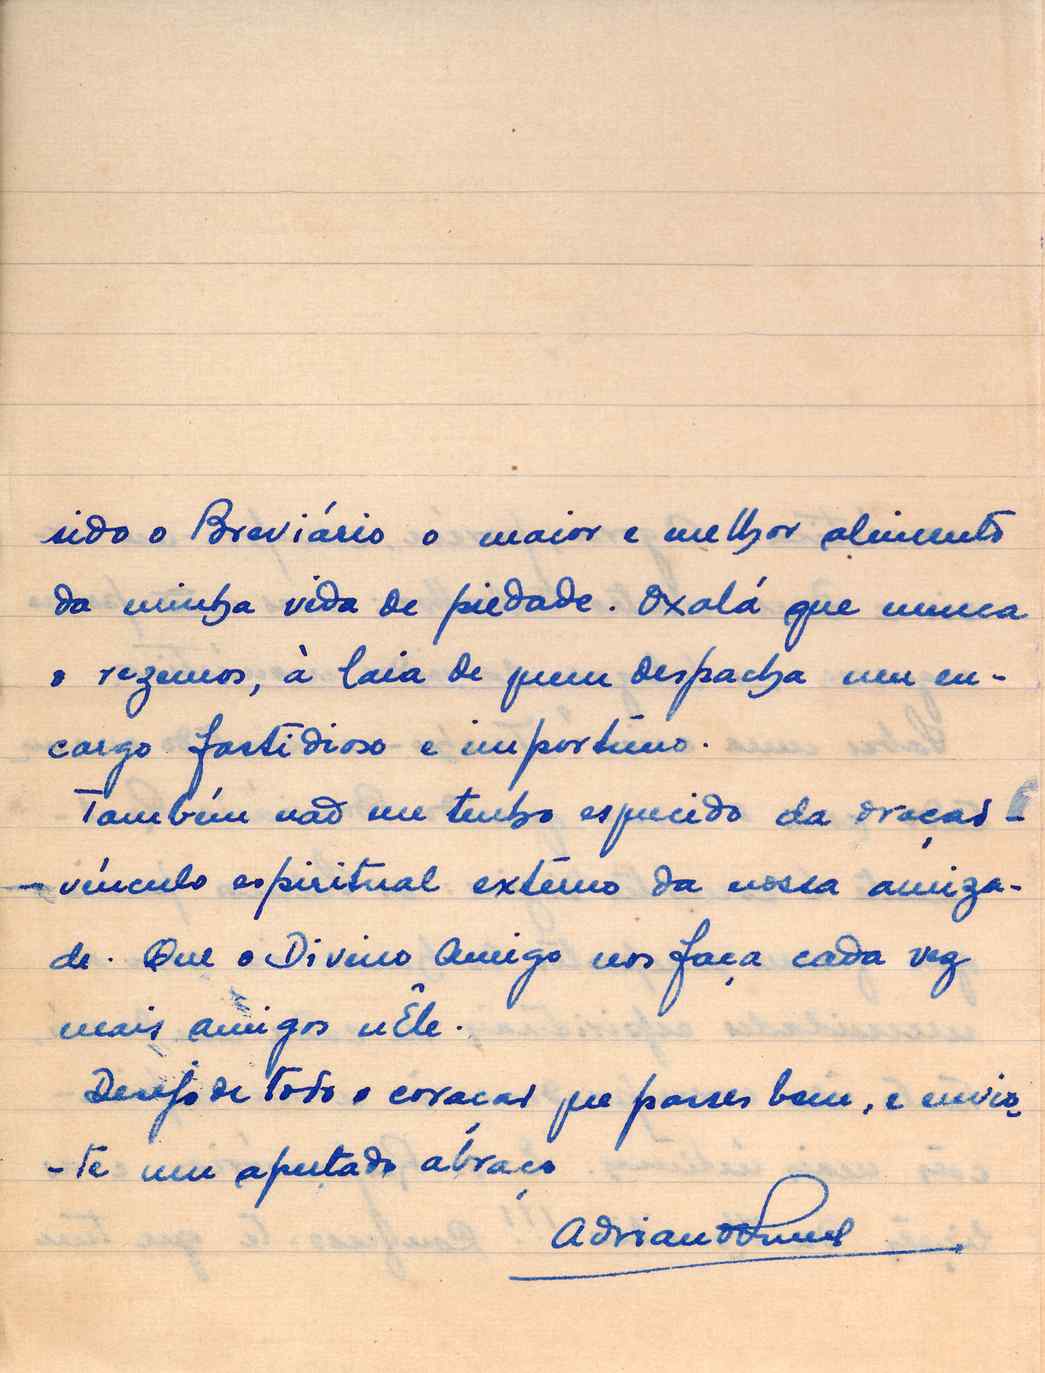 sido o Breviário o maior e melhor alimento
da minha vida de piedade. Oxalá que nunca
o rezemos, à laia de quem despacha um en-
cargo fastidioso e importuno.
Também não me tenho esquecido da oração -
- vínculo espiritual externo da nossa amiza-
de. Que o Divino Amigo nos faça cada vez
mais amigos n'Êle.
Desejo de todo o coração que passes bem, e envio-
-te um apertado abraço
Adriano